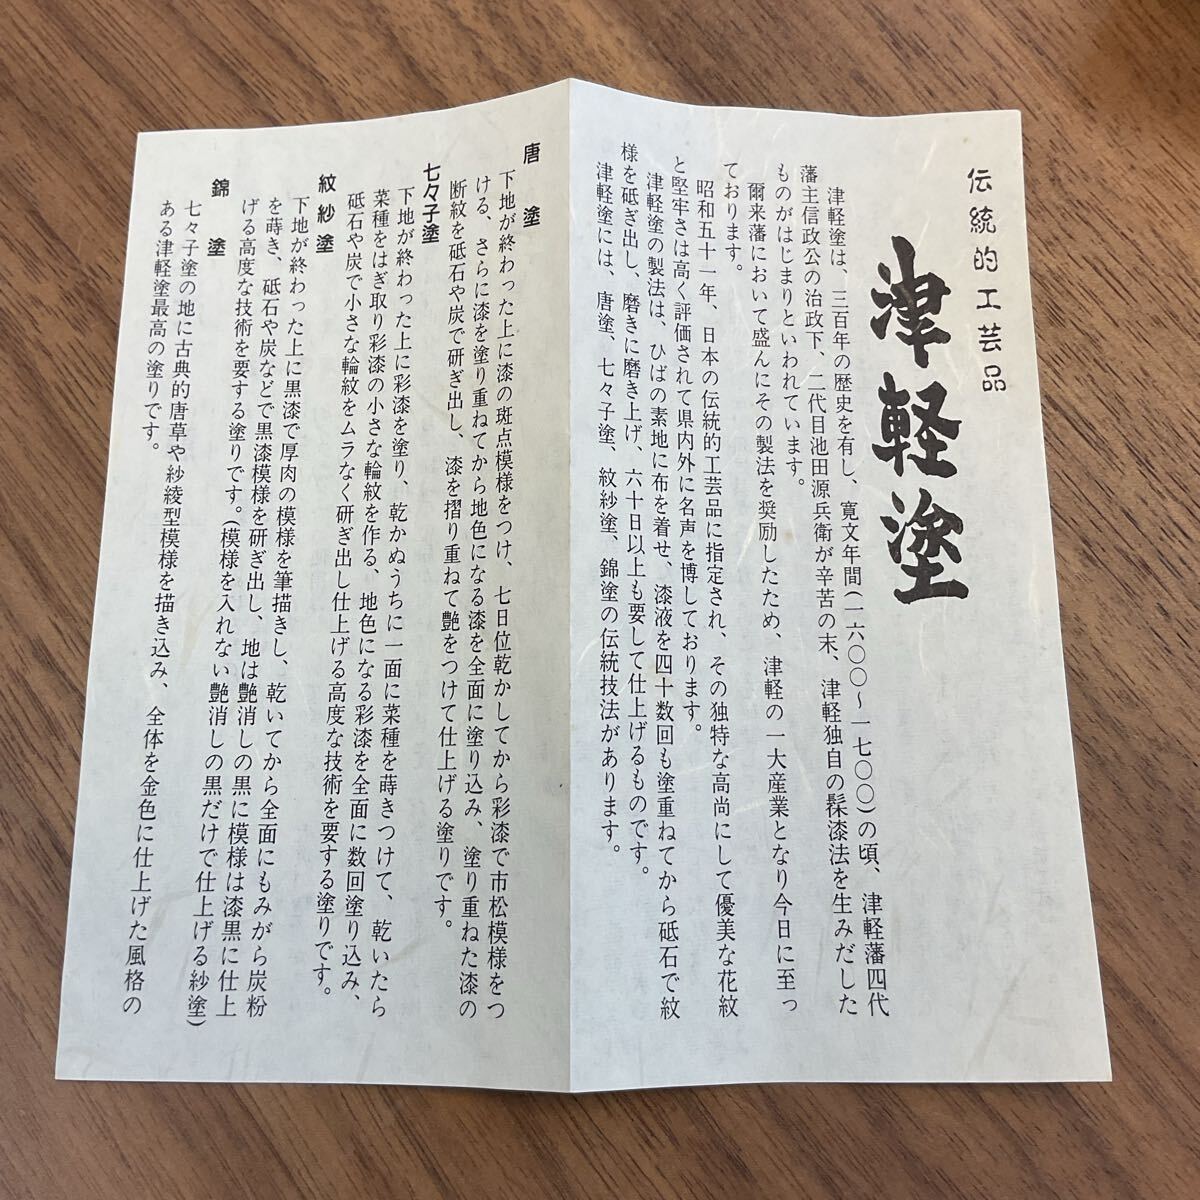 伝統的工芸品
津軽塗
津軽塗は、三百年の歴史を有し、寛文年間(一六〇〇〜一七〇〇)の頃、津軽藩四代
藩主信政公の治政下、二代目池田源兵衛が辛苦の末、津軽独自の髹漆法を生みだした
ものがはじまりといわれています。
爾来藩において盛んにその製法を奨励したため、津軽の一大産業となり今日に至っ
ております。
昭和五十一年、日本の伝統的工芸品に指定され、その独特な高尚にして優美な花紋
と堅牢さは高く評価されて県内外に名声を博しております。
津軽塗の製法は、ひばの素地に布を着せ、漆液を四十数回も塗重ねてから砥石で紋
様を砥ぎ出し、磨きに磨き上げ、六十日以上も要して仕上げるものです。
津軽塗には、唐塗、七々子塗、紋紗塗、錦塗の伝統技法があります。
唐塗
下地が終わった上に漆の斑点模様をつけ、七日位乾かしてから彩漆で市松模様をつ
ける、さらに漆を塗り重ねてから地色になる漆を全面に塗り込み、塗り重ねた漆の
断紋を砥石や炭で研ぎ出し、漆を摺り重ねて艶をつけて仕上げる塗りです。
七々子塗
下地が終わった上に彩漆を塗り、乾かぬうちに一面に菜種を蒔きつけて、乾いたら
菜種をはぎ取り彩漆の小さな輪紋を作る、地色になる彩漆を全面に数回塗り込み、
砥石や炭で小さな輪紋をムラなく研ぎ出し仕上げる高度な技術を要する塗りです。
紋紗塗
下地が終わった上に黒漆で厚肉の模様を筆描きし、乾いてから全面にもみがら炭粉
を蒔き、砥石や炭などで黒漆模様を研ぎ出し、地は艶消しの黒に模様は漆黒に仕上
げる高度な技術を要する塗りです。(模様を入れない艶消しの黒だけで仕上げる紗塗)
錦塗
七々子塗の地に古典的唐草や紗綾型模様を描き込み、全体を金色に仕上げた風格の
ある津軽塗最高の塗りです。